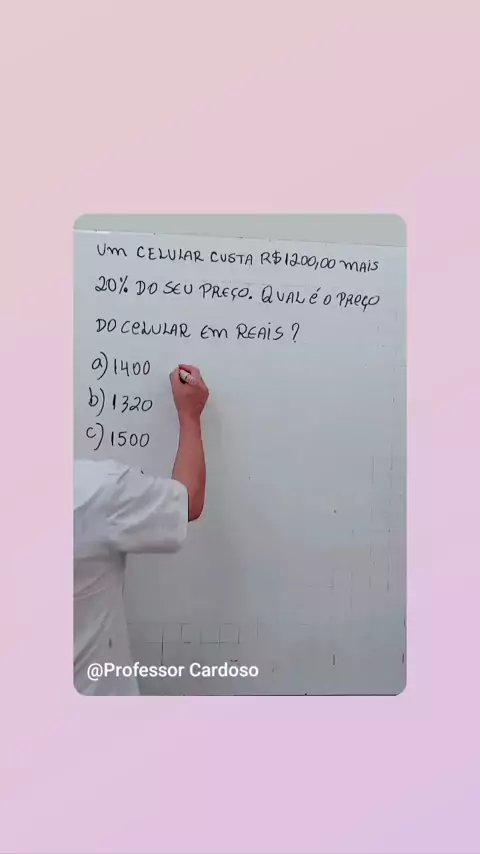 Um CELULAR CUSTA R$1200,00 mAIS
20% DO SEU PREÇO. QUAL É O PREÇO
DO CELULAR Em REAIS?
a) 1400
b) 1320
c) 1500
@Professor Cardoso